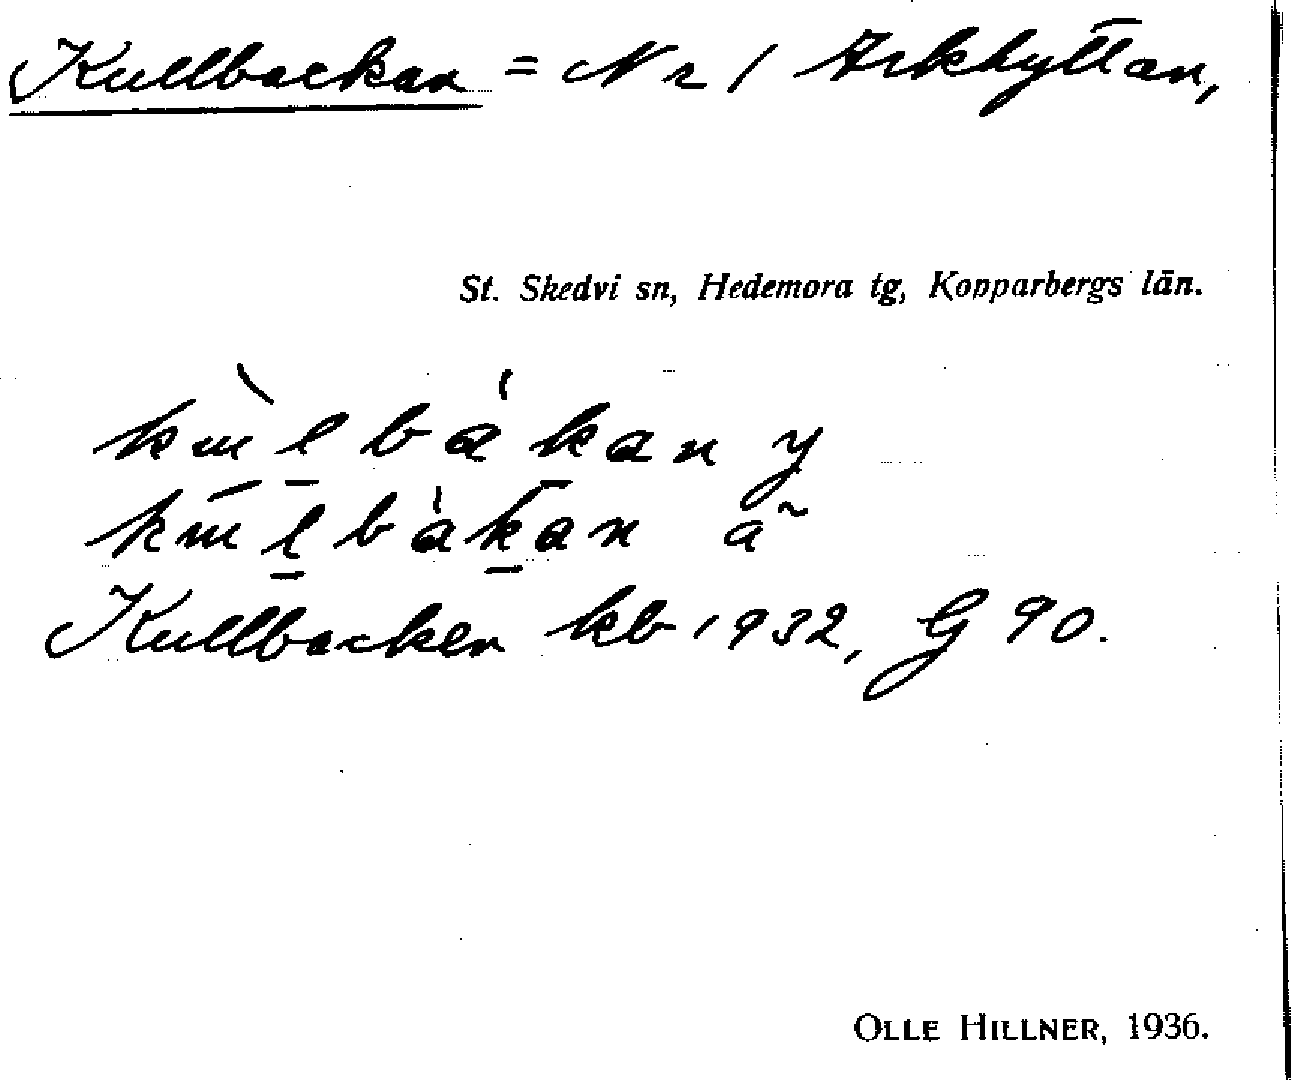 Kullbackan = Nr 1 Arkhyttan,
St. Skedvi sn, Hedemora tg, Kopparbergs län.
kùlbákan y
kùlbàkan ã
Kullbacken kb 1932, G 90.
OLLE HILLNER, 1936.